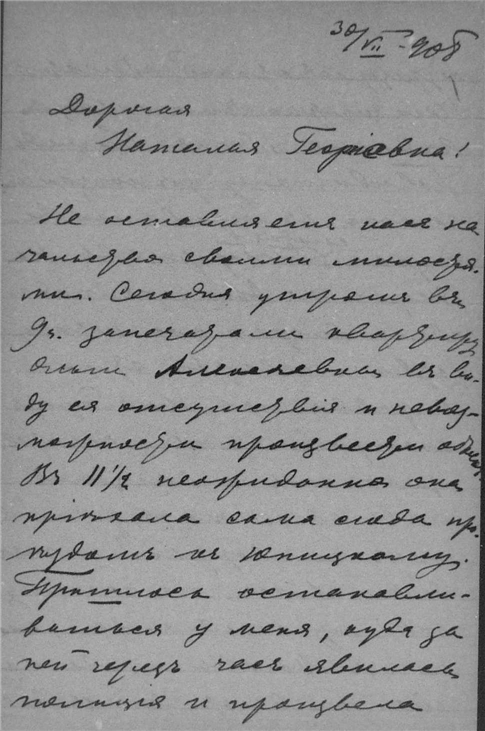 30/VII-908
Дорогая
Наталья Георгiевна!
Не оставляетъ насъ на
чальство своими милостя-
ми. Сегодня утромъ въ
9ч. запечатали квартиру
Ольги Алексѣевны въ ви-
ду ея отсутствiя и невоз-
можности произвести обыскъ.
Въ 11 1/2 неожиданно она
прiѣхала сама сюда про-
ѣздомъ къ
Пришлось останавли-
ваться у меня, куда за
ней черезъ часъ явилась
полицiя и произвела